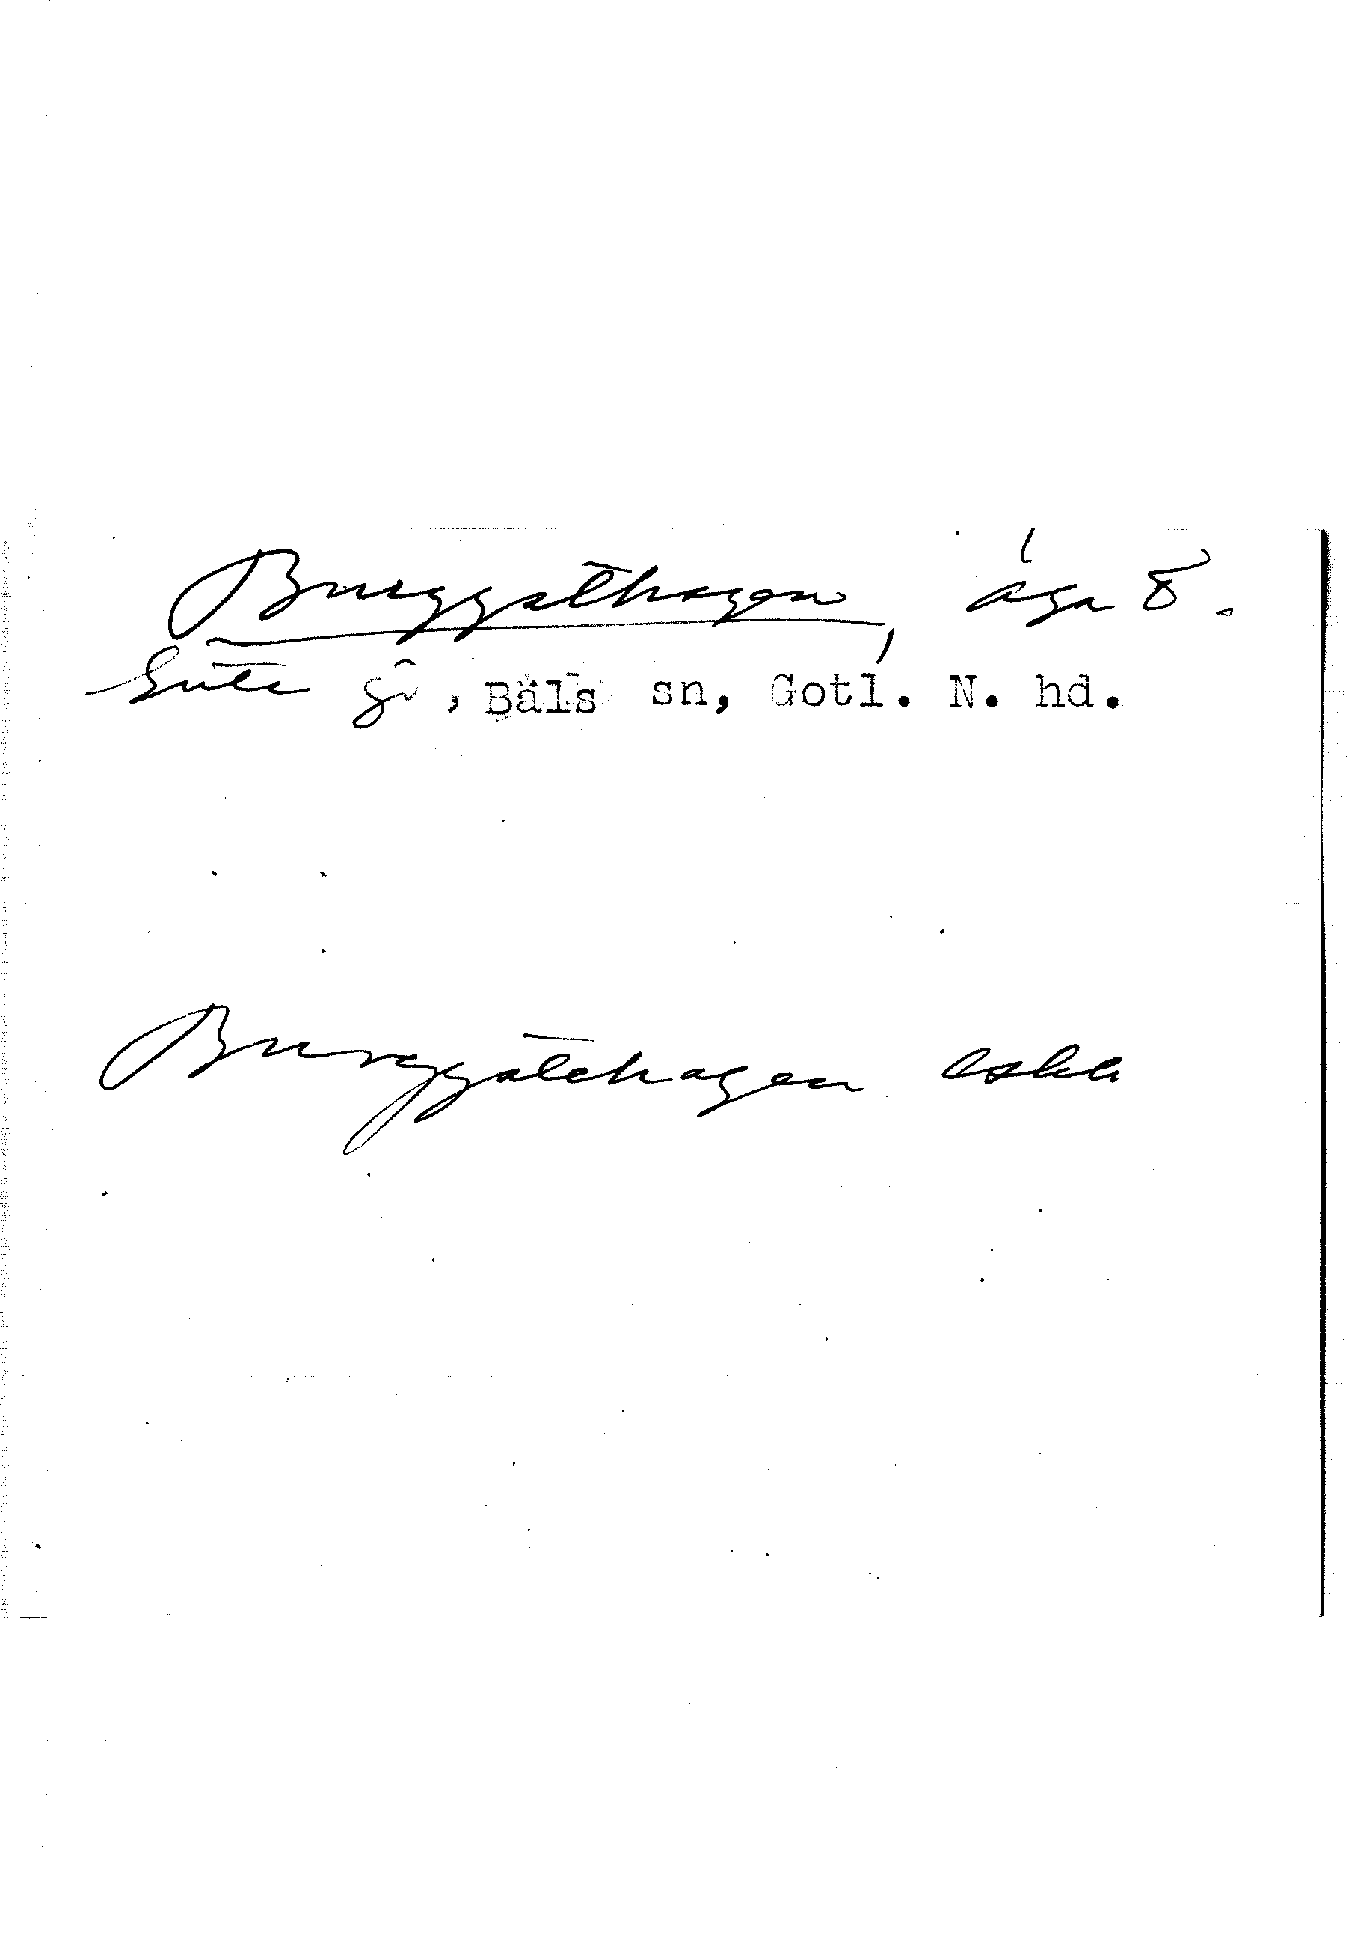 Burggathagen, äga 8.
Gute gd, Bäls sn, Gotl. N. hd.
Burggatehagen